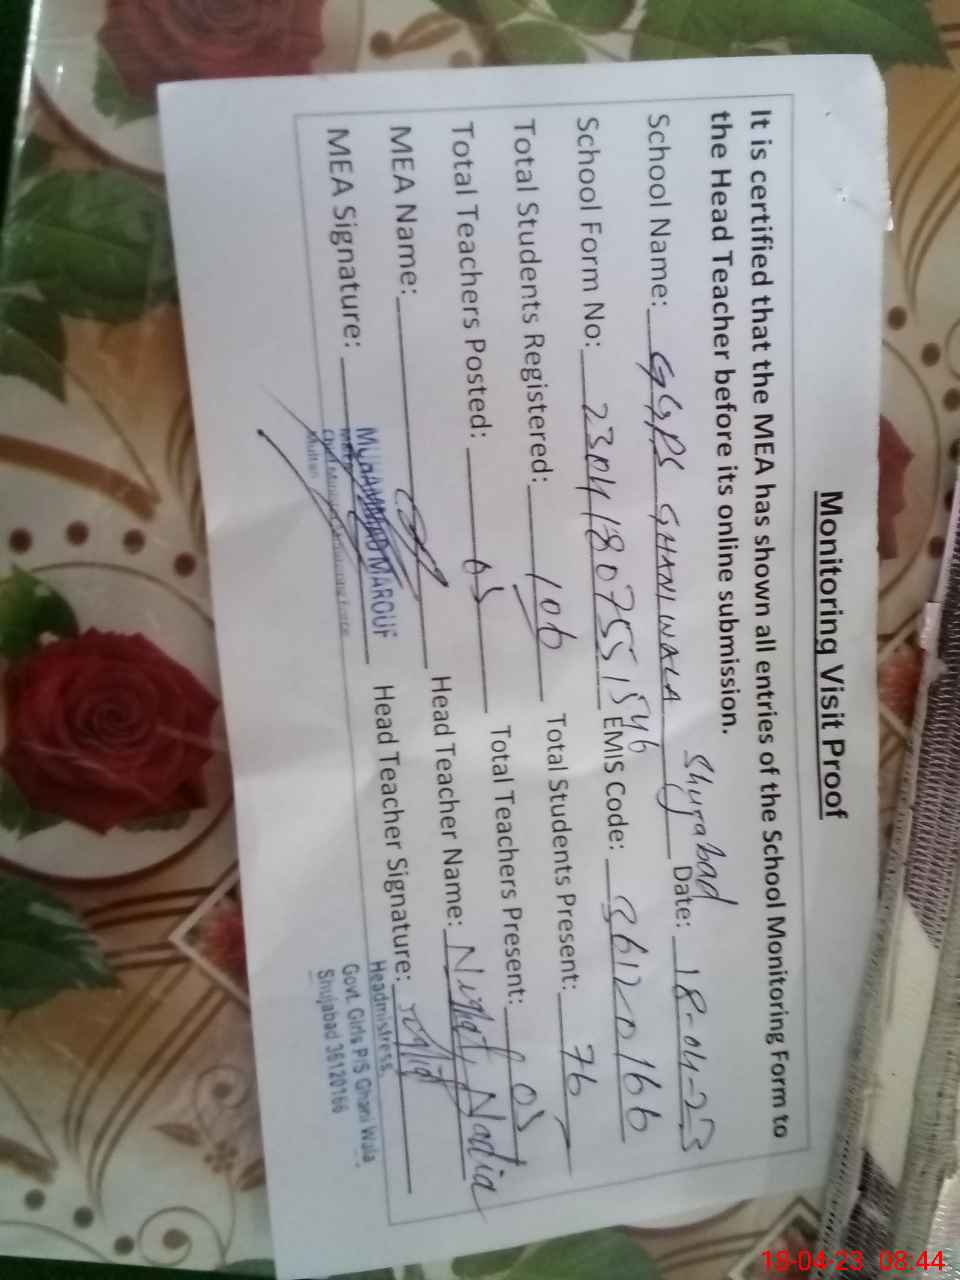 Monitoring Visit Proof
It is certified that the MEA has shown all entries of the School Monitoring Form to
the Head Teacher before its online submission.
School Name: GGPS GHANI WALA Shujabad Date: 18-04-23
School Form No: 23041807551546 EMIS Code: 36120166
Total Students Registered: 106 Total Students Present: 76
Total Teachers Posted: 05 Total Teachers Present: 05
MEA Name: Head Teacher Name: Nighat Nadia
MEA Signature: MUHAMMAD MAROUF Head Teacher Signature:
Multan
Headmistress
Govt. Girls P/S Ghani Wala
Shujabad 36120166
19-04-23 08:44